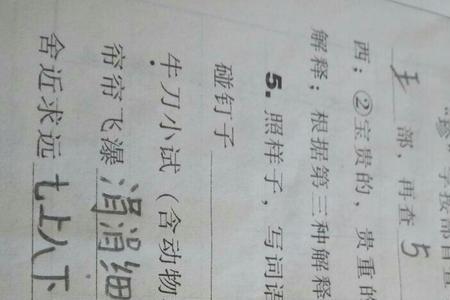 “珍”字按部首
王部，再查 5
西；②宝贵的，贵重的
解释；根据第三种解释
5. 照样子，写词语
碰钉子
牛刀小试（含动物
帘帘飞瀑 涓涓细
舍近求远 七上八下